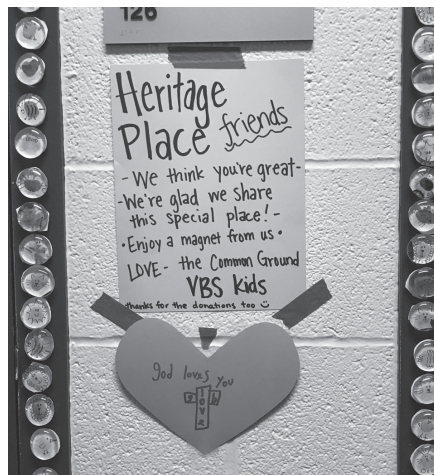 126
Heritage
Place friends
- We think you're great -
- We're glad we share
this special place! -
• Enjoy a magnet from us •
LOVE - the Common Ground
VBS kids
thanks for the donations too ☺
god loves you
love